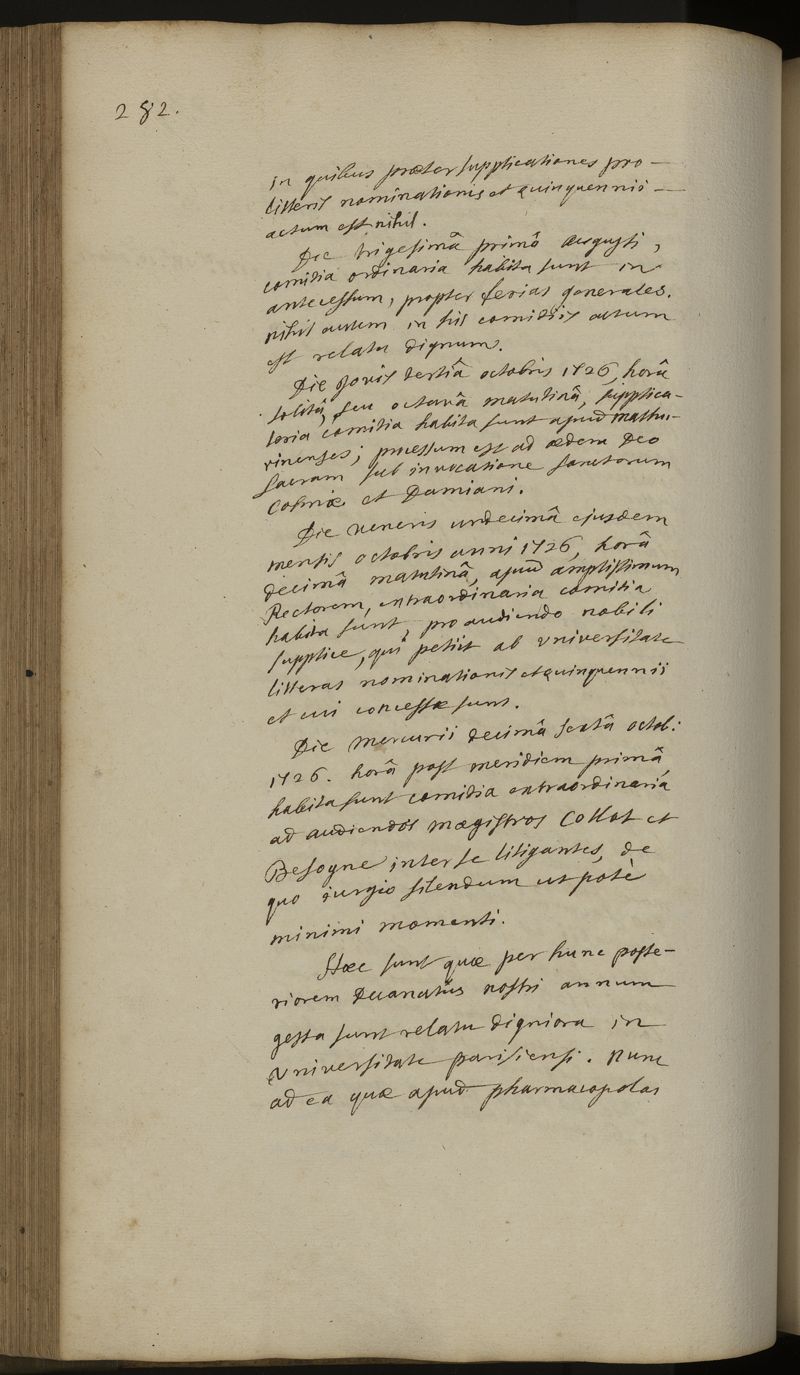 282.
in quibus præter supplicationes pro-
litteris nominationis et quinquennii-
actum est nihil.
Die trigesimâ primâ augusti,
comitia ordinaria habita sunt in
antecessum, propter ferias generales.
nihil autem in his comitiis actum
est relatu dignum.
Die Jovis tertiâ octobris 1726, horâ
solitâ, seu octavâ matutinâ, supplica-
toria comitia habita sunt apud mathu-
rinenses; processum est ad ædem Deo
sacram sub invocatione sanctorum
Cosmæ et Damiani.
Die veneris undecimâ ejusdem
mensis octobris anni 1726, horâ
decimâ matutinâ, apud amplissimum
Rectorem, extraordinaria comitia
habita sunt, pro audiendo nobili
supplice, qui petiit ab vniversitate
litteras nominationis et quinquennii
et cui concessæ sunt.
Die mercurii decimâ sextâ octob:
1726. horâ post meridiem primâ,
habita sunt comitia extraordinaria
ad audiendos magistros Collot et
Besogne inter se litigantes, de
quo jurgio silendum ut potè
minimi momenti.
Hæc sunt quæ per hunc poste-
riorem Decanatûs nostri annum
gesta sunt relatu digniora in
vniversitate parisiensi. nunc
ad ea quæ apud pharmacopolas